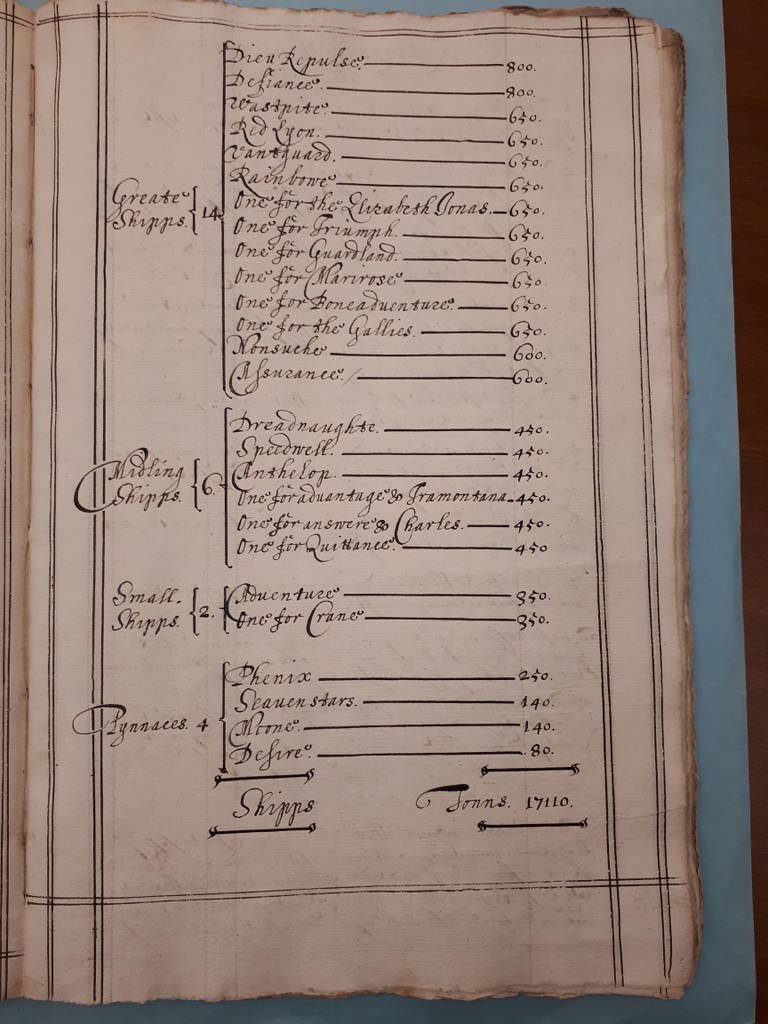 Dieu Repulse. 800.
Defiance. 800.
Wastpite. 650.
Red Lyon. 650.
Vantguard. 650.
Rainbowe 650.
Greate Shipps. 14. One for the Elizabeth Jonas. 650.
One for Triumph. 650.
One for Guardland. 650.
One for Marirose 650.
One for Boneadventure. 650.
One for the Gallies. 650.
Nonsuche 600.
Assurance. / 600.
Dreadnaughte. 450.
Speedwell. 450.
Midling Shipps. 6. Anthelop. 450.
One for advantage & Tramontana 450.
One for answere & Charles. 450.
One for Quittance. 450
Small Shipps. 2. Adventure 350.
One for Crane 350.
Phenix 250.
Seavenstars. 140.
Pynnaces. 4 Moone. 140.
Desire. 80.
Shipps Tonns. 17110.